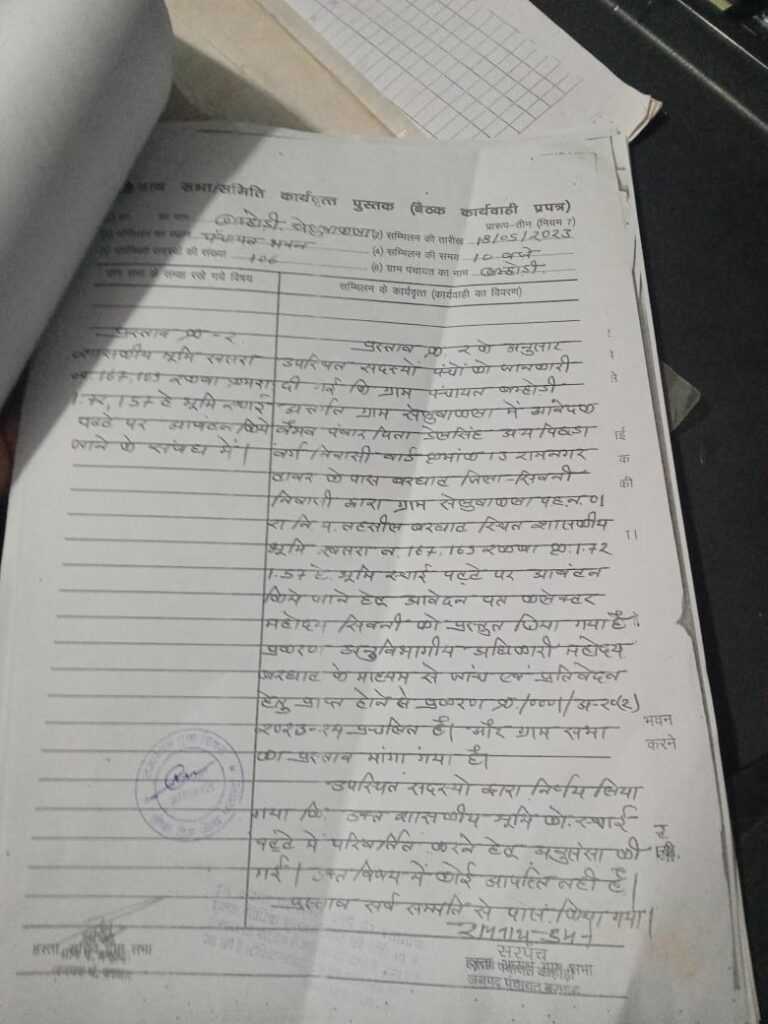 ग्राम सभा/समिति कार्यवृत्त पुस्तक (बैठक कार्यवाही प्रपत्र)
प्रारूप-तीन (नियम 7)
का नाम (2) सम्मिलन की तारीख 18/05/2023
सम्मिलन का स्थान पंचायत भवन (4) सम्मिलन का समय 10 बजे
उपस्थित सदस्यों की संख्या 106 (6) ग्राम पंचायत का नाम बम्होडी
ग्राम सभा के समक्ष रखे गये विषय
सम्मिलन के कार्यवृत्त (कार्यवाही का विवरण)
प्रस्ताव क्र-2
शासकीय भूमि खसरा
न. 167,165 रकबा क्रमश
1.72, 1.57 हे भूमि स्थाई
पट्टे पर आवंटन किये
जाने के संबंध में।
प्रस्ताव क्र. 2 के अनुसार
उपस्थित सदस्यों पंचों को जानकारी
दी गई कि ग्राम पंचायत बम्होडी
ग्राम में आवेदक
पंवार पिता
वर्ग निवासी वार्ड क्रमांक 15 रामनगर
के पास बरघाट जिला-सिवनी
निवासी द्वारा ग्राम प.ह.न. 01
रा नि म. तहसील बरघाट स्थित शासकीय
भूमि खसरा न. 167,165 रकबा क्र. 1.72
1.57 हे. भूमि स्थाई पट्टे पर आवंटन
किये जाने हेतु आवेदन पत्र कलेक्टर
महोदय सिवनी को प्रस्तुत किया गया है।
प्रकरण अनुविभागीय अधिकारी महोदय
बरघाट के माध्यम से जांच एवं प्रतिवेदन
हेतु प्राप्त होने से प्रकरण क्र./0001/अ-20(2)
2023-24 प्रचलित है। और ग्राम सभा
का प्रस्ताव मांगा गया है।
उपस्थित सदस्यो द्वारा निर्णय लिया
गया कि उक्त शासकीय भूमि को स्थाई
पट्टे में परिवर्तित करने हेतु अनुसंसा की
गई। उक्त विषय में कोई आपत्ति नही है।
प्रस्ताव सर्व सम्मति से पास किया गया।
सरपंच
जनपद पंचायत बरघाट
भवन
करने